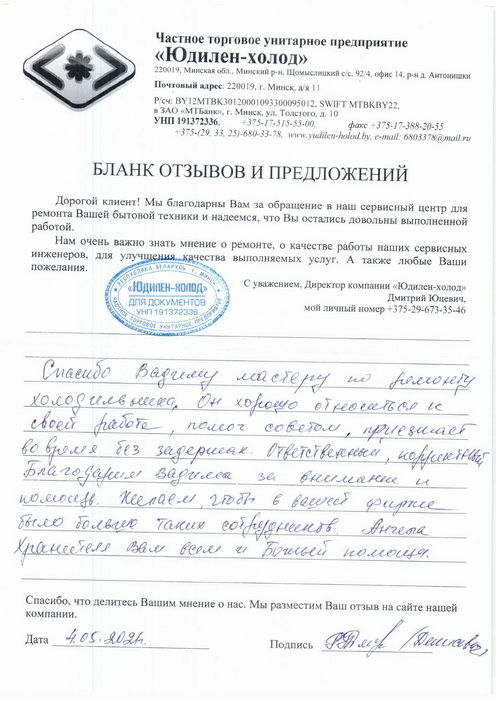 Частное торговое унитарное предприятие
«Юдилен-холод»
220019, Минская обл., Минский р-н, Щомыслицкий с/с, 92/4, офис 14, р-н д. Антонишки
Почтовый адрес: 220019, г. Минск, а/я 11
Р/сч: BY12MTBK30120001093300095012, SWIFT MTBKBY22,
в ЗАО «МТБанк», г. Минск, ул. Толстого, д. 10
УНП 191372336, +375-17-515-55-00, факс +375-17-388-20-55
+375-(29, 33, 25)-680-33-78, www.yudilen-holod.by, e-mail: 6803378@mail.ru
БЛАНК ОТЗЫВОВ И ПРЕДЛОЖЕНИЙ
Дорогой клиент! Мы благодарны Вам за обращение в наш сервисный центр для
ремонта Вашей бытовой техники и надеемся, что Вы остались довольны выполненной
работой.
Нам очень важно знать мнение о ремонте, о качестве работы наших сервисных
инженеров, для улучшения качества выполняемых услуг. А также любые Ваши
пожелания.
РЕСПУБЛИКА БЕЛАРУСЬ Г. МИНСК
«ЮДИЛЕН-ХОЛОД»
ДЛЯ ДОКУМЕНТОВ
УНП 191372336
ЧАСТНОЕ ТОРГОВОЕ УНИТАРНОЕ ПРЕДПРИЯТИЕ
С уважением, Директор компании «Юдилен-холод»
Дмитрий Юцевич,
мой личный номер +375-29-673-35-46
Спасибо Вадиму мастеру по ремонту
холодильника. Он хорошо относиться к
своей работе, помог советом, приезжает
во время без задержак. Ответственный, корректный
Благодарим Вадима за внимание и
помощь. Желаем, чтобы в вашей фирме
было больше таких сотрудников. Ангела
Хранителя Вам всем и Божьей помощи.
Спасибо, что делитесь Вашим мнение о нас. Мы разместим Ваш отзыв на сайте нашей
компании.
Дата 4.05.2024г. Подпись